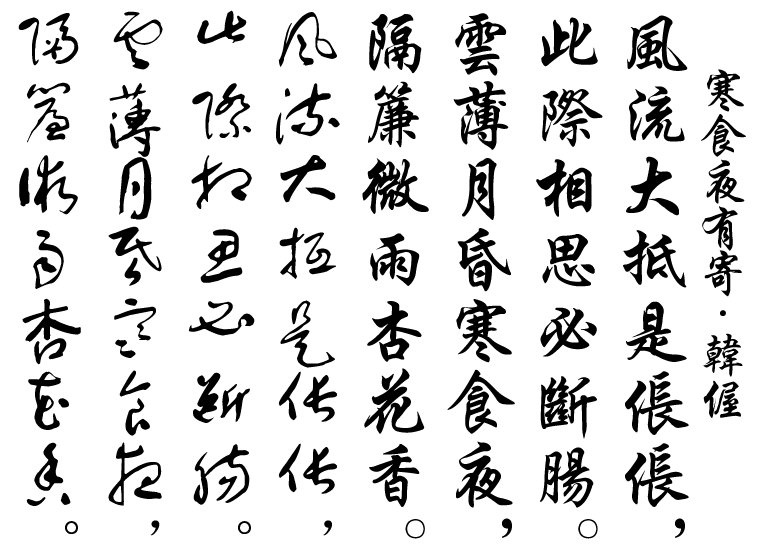 寒食夜有寄·韓偓
風流大抵是倀倀，
此際相思必斷腸。
雲薄月昏寒食夜，
隔簾微雨杏花香。
風流大抵是倀倀，
此際相思必斷腸。
雲薄月昏寒食夜，
隔簾微雨杏花香。